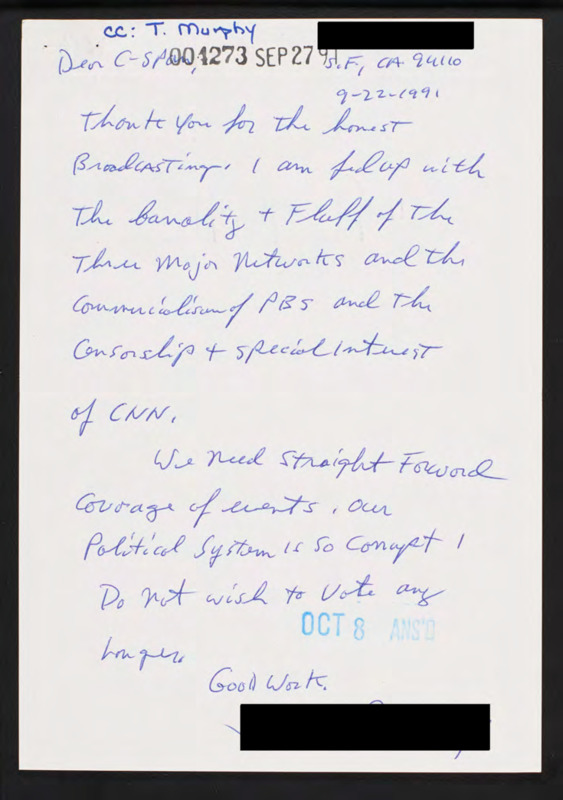 cc: T. Murphy
004273 SEP 27 91
Dear C-Span,
S.F., CA 94110
9-22-1991
Thank you for the honest
Broadcasting. I am fed up with
The banality + Fluff of The
Three Major Networks and the
Commercialism of PBS and The
Censorship + special Interest
of CNN.
We Need Straight Forword
Coverage of events. Our
Political System is so Corrupt I
Do Not wish to Vote any
longer.
OCT 8 ANS'D
Good Work.